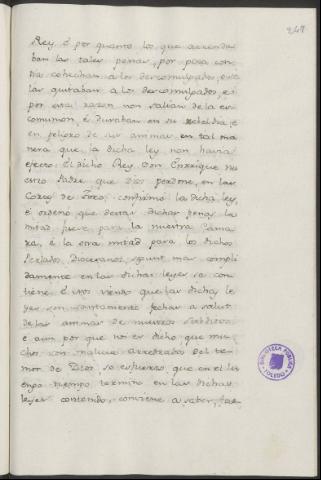 247
Rey, é por quanto los que arrenda
ban las tales penas, por poca con
tia cohechan a los descomulgados, e se
las quitaban a los descomulgados, e
por esta razon non salian de la es
comunion, é duraban en su rebeldia, é
en peligro de sus animas en tal ma
nera que la dicha ley non havia
efecto. El dicho Rey Don Enrrique nu
estro Padre que Dios perdone, en las
Cortes de Toro, confirmó la dicha ley,
é ordeno que destas dichas penas la
mitad fuese para la nuestra Cama
ra, é la otra mitad para los dichos
Perlados, Diocesanos, segunt mas compli
damente en las dichas leyes se con
tiene. É nos viendo que las dichas le
yes son santamente fechas a salut
de las animas de nuestros Subditos
é aun por que nos es dicho que mu
chos con malicia arredrados del te
mor de Dios, se esfuerzan, que en el lu
engo tiempo, termino en las dichas
leyes contenido, conviene a saber,
BIBLIOTECA PUBLICA
TOLEDO